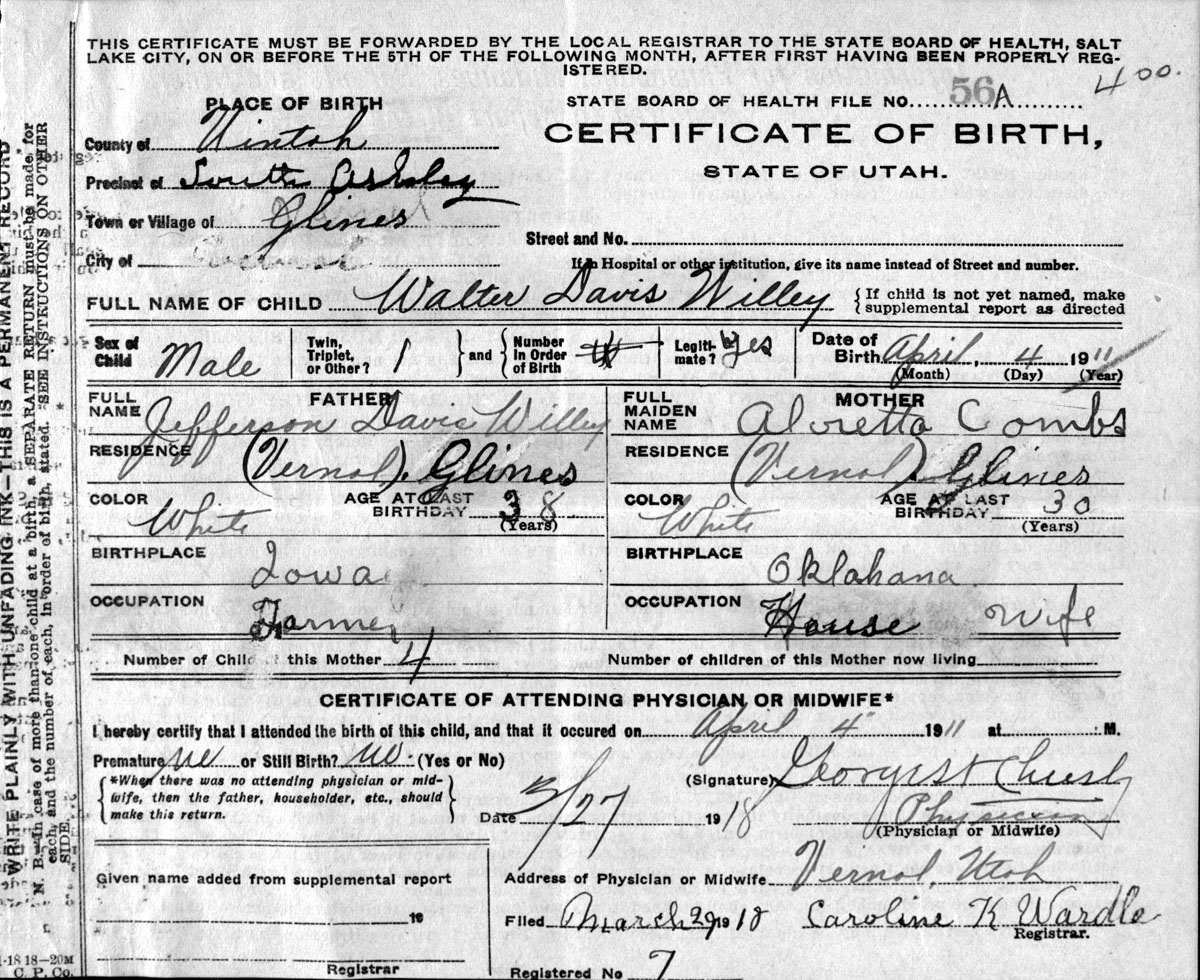 THIS CERTIFICATE MUST BE FORWARDED BY THE LOCAL REGISTRAR TO THE STATE BOARD OF HEALTH, SALT
LAKE CITY, ON OR BEFORE THE 5TH OF THE FOLLOWING MONTH, AFTER FIRST HAVING BEEN PROPERLY REG-
ISTERED.
4 00.
PLACE OF BIRTH
STATE BOARD OF HEALTH FILE NO. 56 A
County of Uintah
CERTIFICATE OF BIRTH,
Precinct of South Ashley
STATE OF UTAH.
Town or Village of Glines
Street and No.
City of
If in Hospital or other institution, give its name instead of Street and number.
FULL NAME OF CHILD Walter Davis Willey {If child is not yet named, make
supplemental report as directed
Sex of Child Male
Twin, Triplet, or Other? 1
and
Number in Order of Birth
Legiti- mate? Yes
Date of Birth April, 4 1911
(Month) (Day) (Year)
FATHER
FULL NAME Jefferson Davis Willey
RESIDENCE (Vernal). Glines
COLOR White AGE AT LAST BIRTHDAY 38
(Years)
BIRTHPLACE Iowa
OCCUPATION Farmer
MOTHER
FULL MAIDEN NAME Alvretta Combs
RESIDENCE (Vernal). Glines
COLOR White AGE AT LAST BIRTHDAY 30
(Years)
BIRTHPLACE Oklahana
OCCUPATION House Wife
Number of Child of this Mother 4
Number of children of this Mother now living
CERTIFICATE OF ATTENDING PHYSICIAN OR MIDWIFE*
I hereby certify that I attended the birth of this child, and that it occured on April 4" 1911 at M.
Premature no or Still Birth? no. (Yes or No)
{*When there was no attending physician or mid-
wife, then the father, householder, etc., should
make this return.}
(Signature)
Date 3/27 1918
Physician
(Physician or Midwife)
Given name added from supplemental report
Address of Physician or Midwife Vernal, Utah
19
Filed March 29 1918 Caroline K Wardle
Registrar.
Registrar
Registered No 7
WRITE PLAINLY WITH UNFADING INK—THIS IS A PERMANENT RECORD
N. B.—In case of more than one child at a birth, a SEPARATE RETURN must be made for
each, and the number of each, in order of birth, stated. *SEE INSTRUCTIONS ON OTHER
SIDE.
1-18 18—20M
C. P. Co.